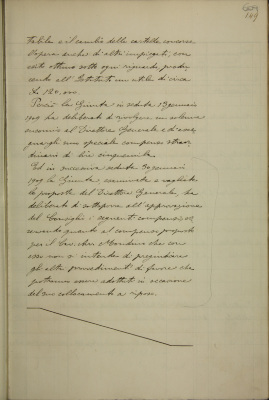 tabile e il cambio delle cartelle concorse
l'opera anche di altri impiegati, con
esito ottimo sotto ogni riguardo, produ-
cendo all'Istituto un utile di circa
120.000.
Perciò la Giunta in seduta 13 gennaio
1909 ha deliberato di rivolgere un solenne
encomio al Direttore Generale e di asse-
gnargli uno speciale compenso straor-
dinario di lire cinquemila.
Ed in successiva seduta 30 gennaio
1909 la Giunta, esaminate e vagliate
le proposte del Direttore Generale, ha
deliberato di sottoporre all'approvazione
del Consiglio i seguenti compensi, os-
servando quanto al compenso proposto
per il Cav. che con
esso non si intende di pregiudicare
gli altri provvedimenti di favore che
potranno essere adottati in occasione
del suo collocamento a riposo.